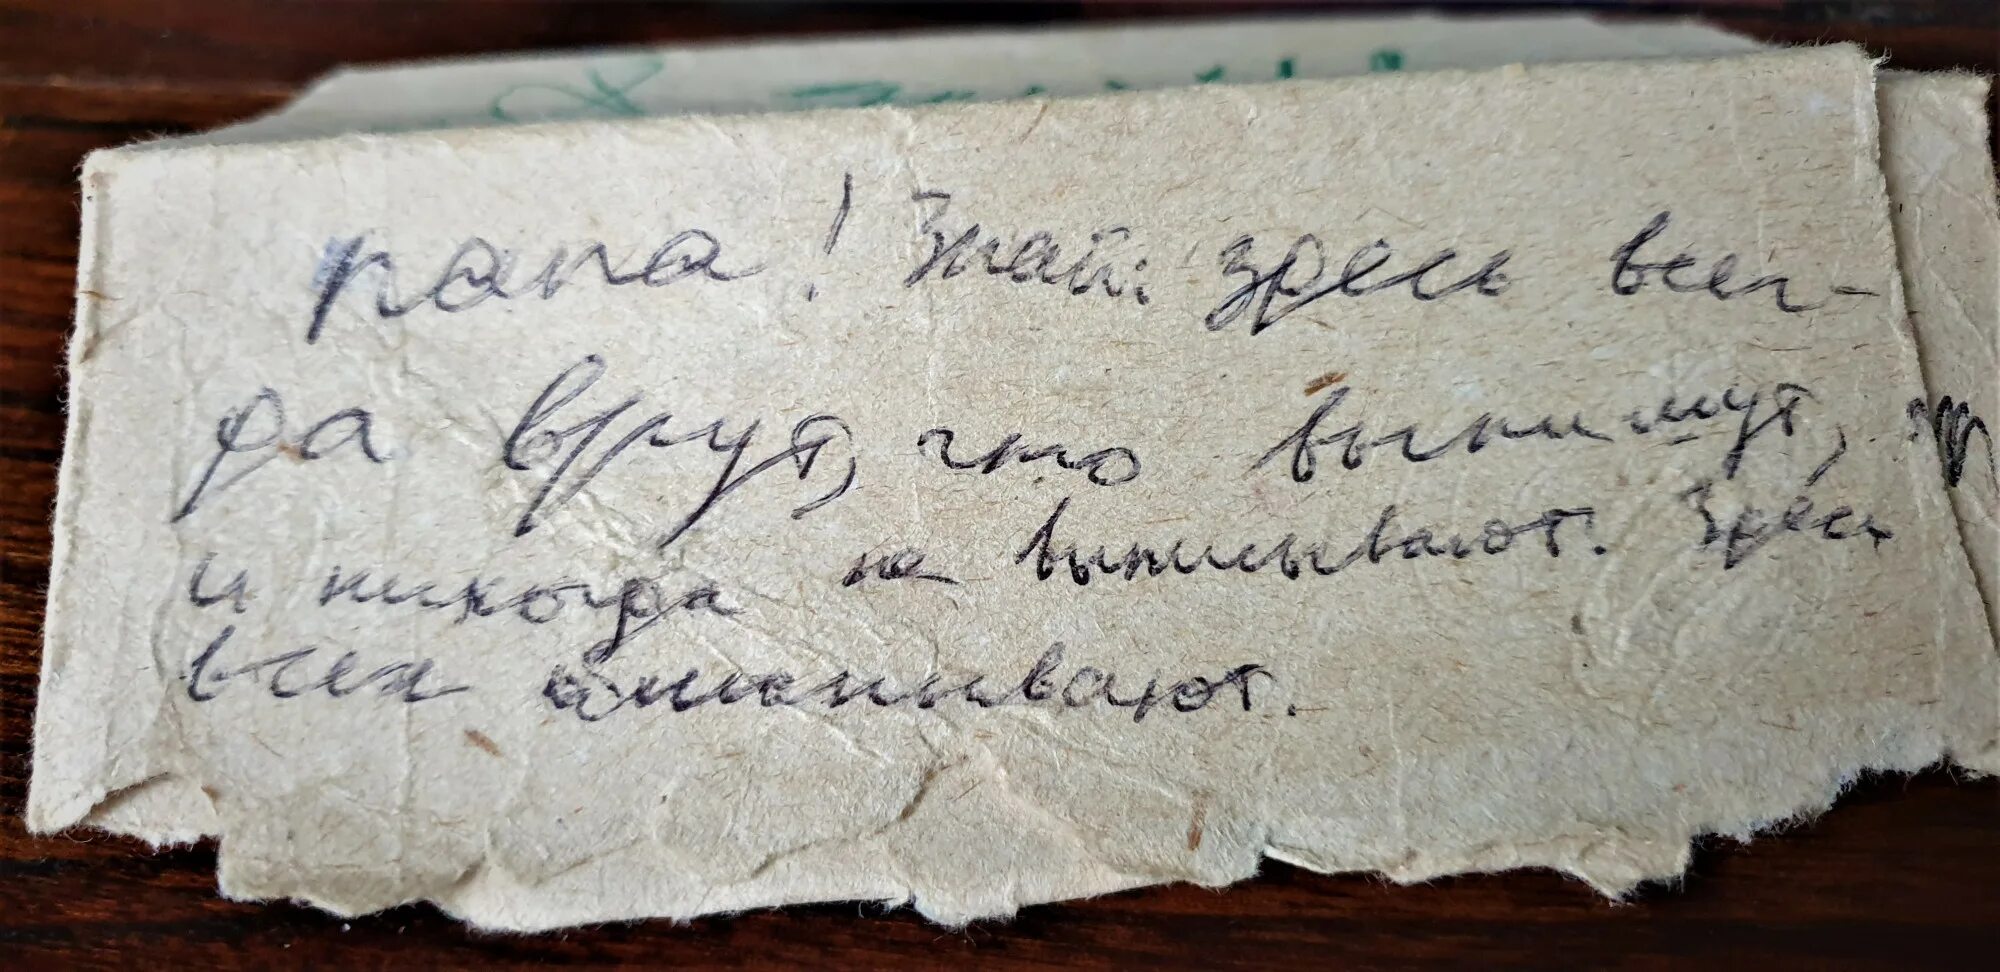 папа! Знай: здесь всег-
да врут, что выпишут,
и никогда не выписывают. Здесь
всех обманывают.